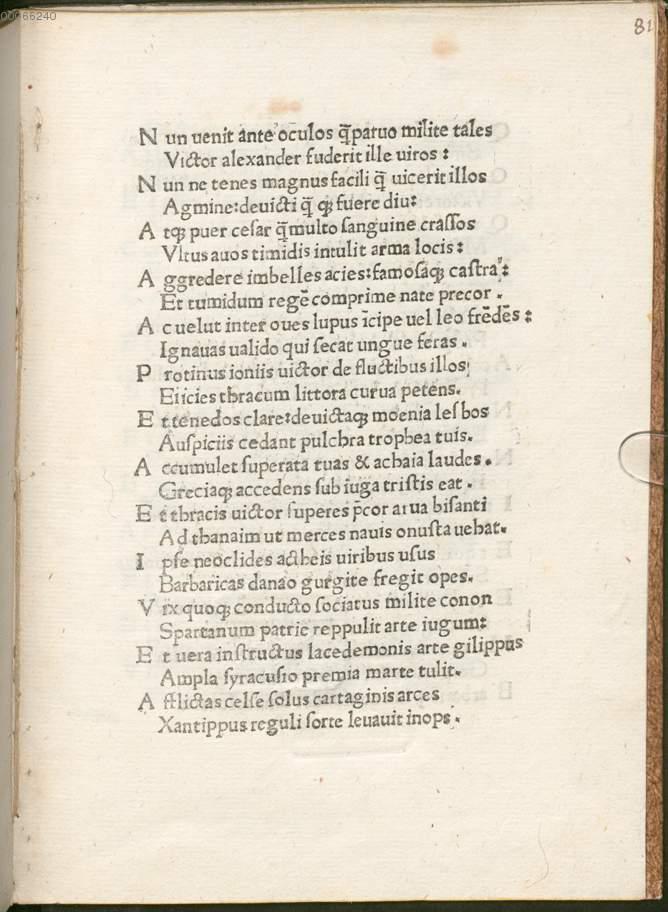 00066240
81
N un uenit ante oculos q̄patuo milite tales
Victor alexander fuderit ille uiros :
N un ne tenes magnus facili q̄ uicerit illos
Agmine:deuicti q̄ qꝫ fuere diu:
A tqꝫ puer cesar q̄multo sanguine crassos
Vltus auos timidis intulit arma locis :
A ggredere imbelles acies:famosaqꝫ castra :
Et tumidum regē comprime nate precor .
A c uelut inter oues lupus īcipe uel leo frēdēs :
Ignauas ualido qui secat ungue feras .
P rotinus ioniis uictor de fluctibus illos
Eiicies thracum littora curua petens.
E t tenedos clare:deuictaqꝫ moenia lesbos
Auspiciis cedant pulchra trophea tuis.
A ccumulet superata tuas & achaia laudes .
Greciaqꝫ accedens sub iuga tristis eat .
E t thracis uictor superes p̄cor arua bisanti
Ad thanaim ut merces nauis onusta uehat.
I pse neoclides actheis uiribus usus
Barbaricas danao gurgite fregit opes.
V ix quoqꝫ conducto sociatus milite conon
Spartanum patrie reppulit arte iugum:
E t uera instructus lacedemonis arte gilippus
Ampla syracusio premia marte tulit.
A fflictas celse solus cartaginis arces
Xantippus reguli sorte leuauit inops .